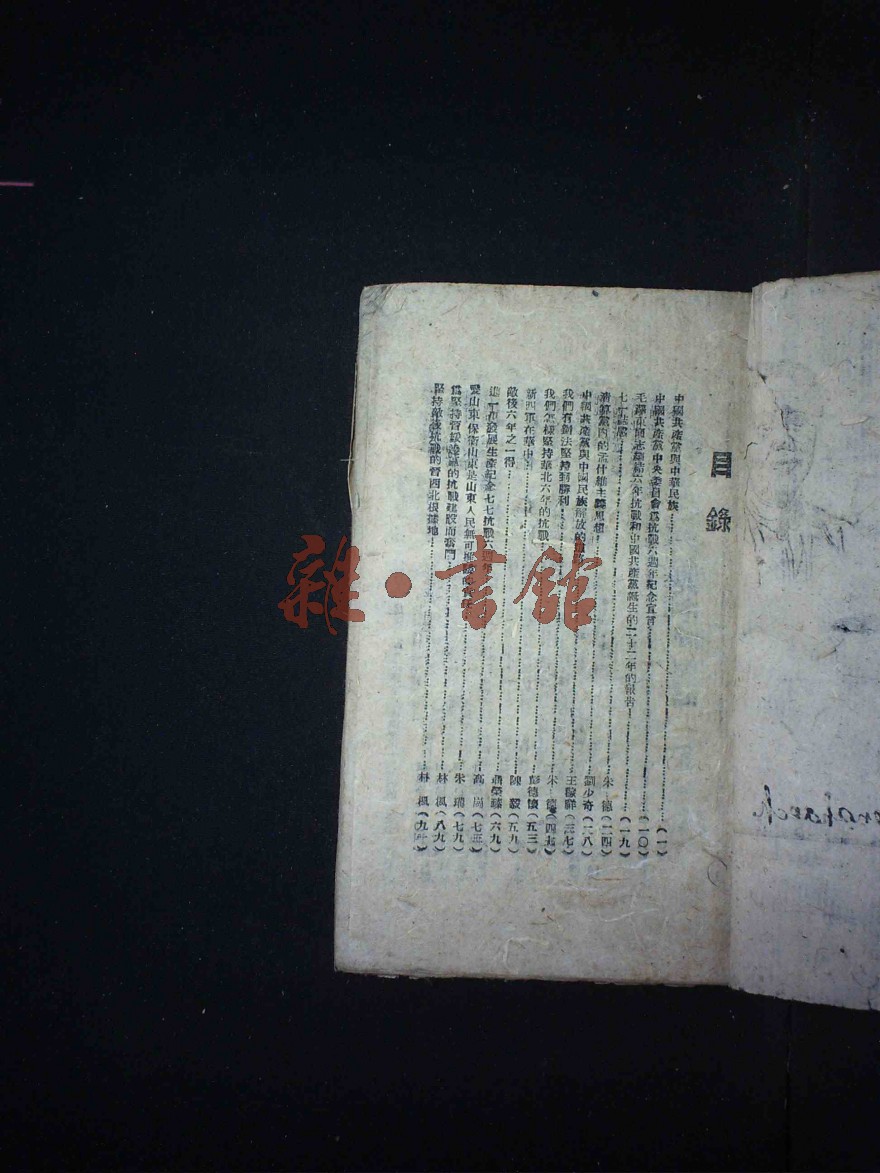 目錄
中國共產黨與中華民族……(一)
中國共產黨中央委員會爲抗戰六週年紀念宣言……(一〇)
毛澤東同志總結六年抗戰和中國共產黨誕生的二十二年的報告……(一九)
七一志感……朱 德(二四)
清算黨內的孟什維主義思想……劉少奇(二八)
中國共產黨與中國民族解放的道路……王稼祥(三七)
我們有辦法堅持到勝利……朱 德(四七)
我們怎樣堅持華北六年的抗戰……彭德懷(五三)
新四軍在華中……陳 毅(五九)
敵後六年之一得……聶榮臻(六九)
進一步發展生產紀念七七抗戰六週年……高 崗(七五)
愛山東保衛山東是山東人民無可……朱 瑞(七九)
爲堅持晉綏邊區的抗戰建設而奮鬥……林 楓(八九)
堅持敵後抗戰的晉西北根據地……林 楓
雜·書館